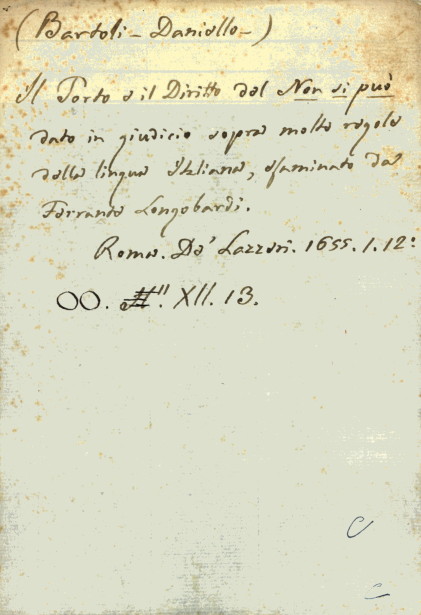 (Bartoli - Daniello - )
Il Torto e il Diritto del Non si può
dato in giudicio sopra molte regole
della lingua Italiana, esaminato da
Ferrante Longobardi.
Roma. De' Lazzeri. 1655. 1. 12:
OO. XII. 13.